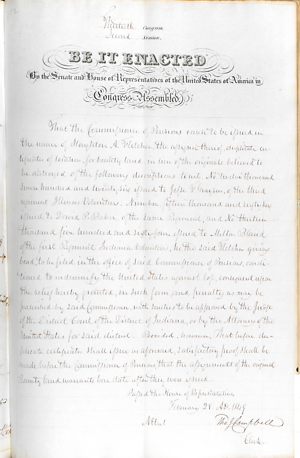 Thirtieth Congress
Second Session
BE IT ENACTED
By the Senate and House of Representatives of the United States of America in
Congress Assembled,
That the Commissioner of Pensions cause to be issued in
the name of A. Fletcher the assignee thereof, duplicate
of land warrants for bounty land in lieu of the originals believed to
be destroyed of the following descriptions to wit. No
hundred and twenty issued to John of the third
regiment Indiana Volunteers. Number fifteen thousand and sixty
issued to David of the same Regiment, and No
thousand four hundred and sixty four issued to
of the first Regiment Indiana Volunteers; he the said Fletcher giving
bond, to be filed in the office of said Commissioner of Pensions, condi-
tioned to indemnify the United States against loss consequent upon
the relief hereby granted, in such form and penalty as may be
prescribed by said Commissioner with sureties to be approved by the Judge
of the District Court of the District of Indiana, or by the Attorney of the
United States for said district. Provided, however, That before
certificate shall issue as aforesaid, satisfactory proof shall be
made before the Commissioner of Pensions that the assignment of the original
bounty land warrants bore date after they were issued.
Passed the House of Representatives
February 28 A.D. 1849
Attest
Tho J Campbell
Clerk